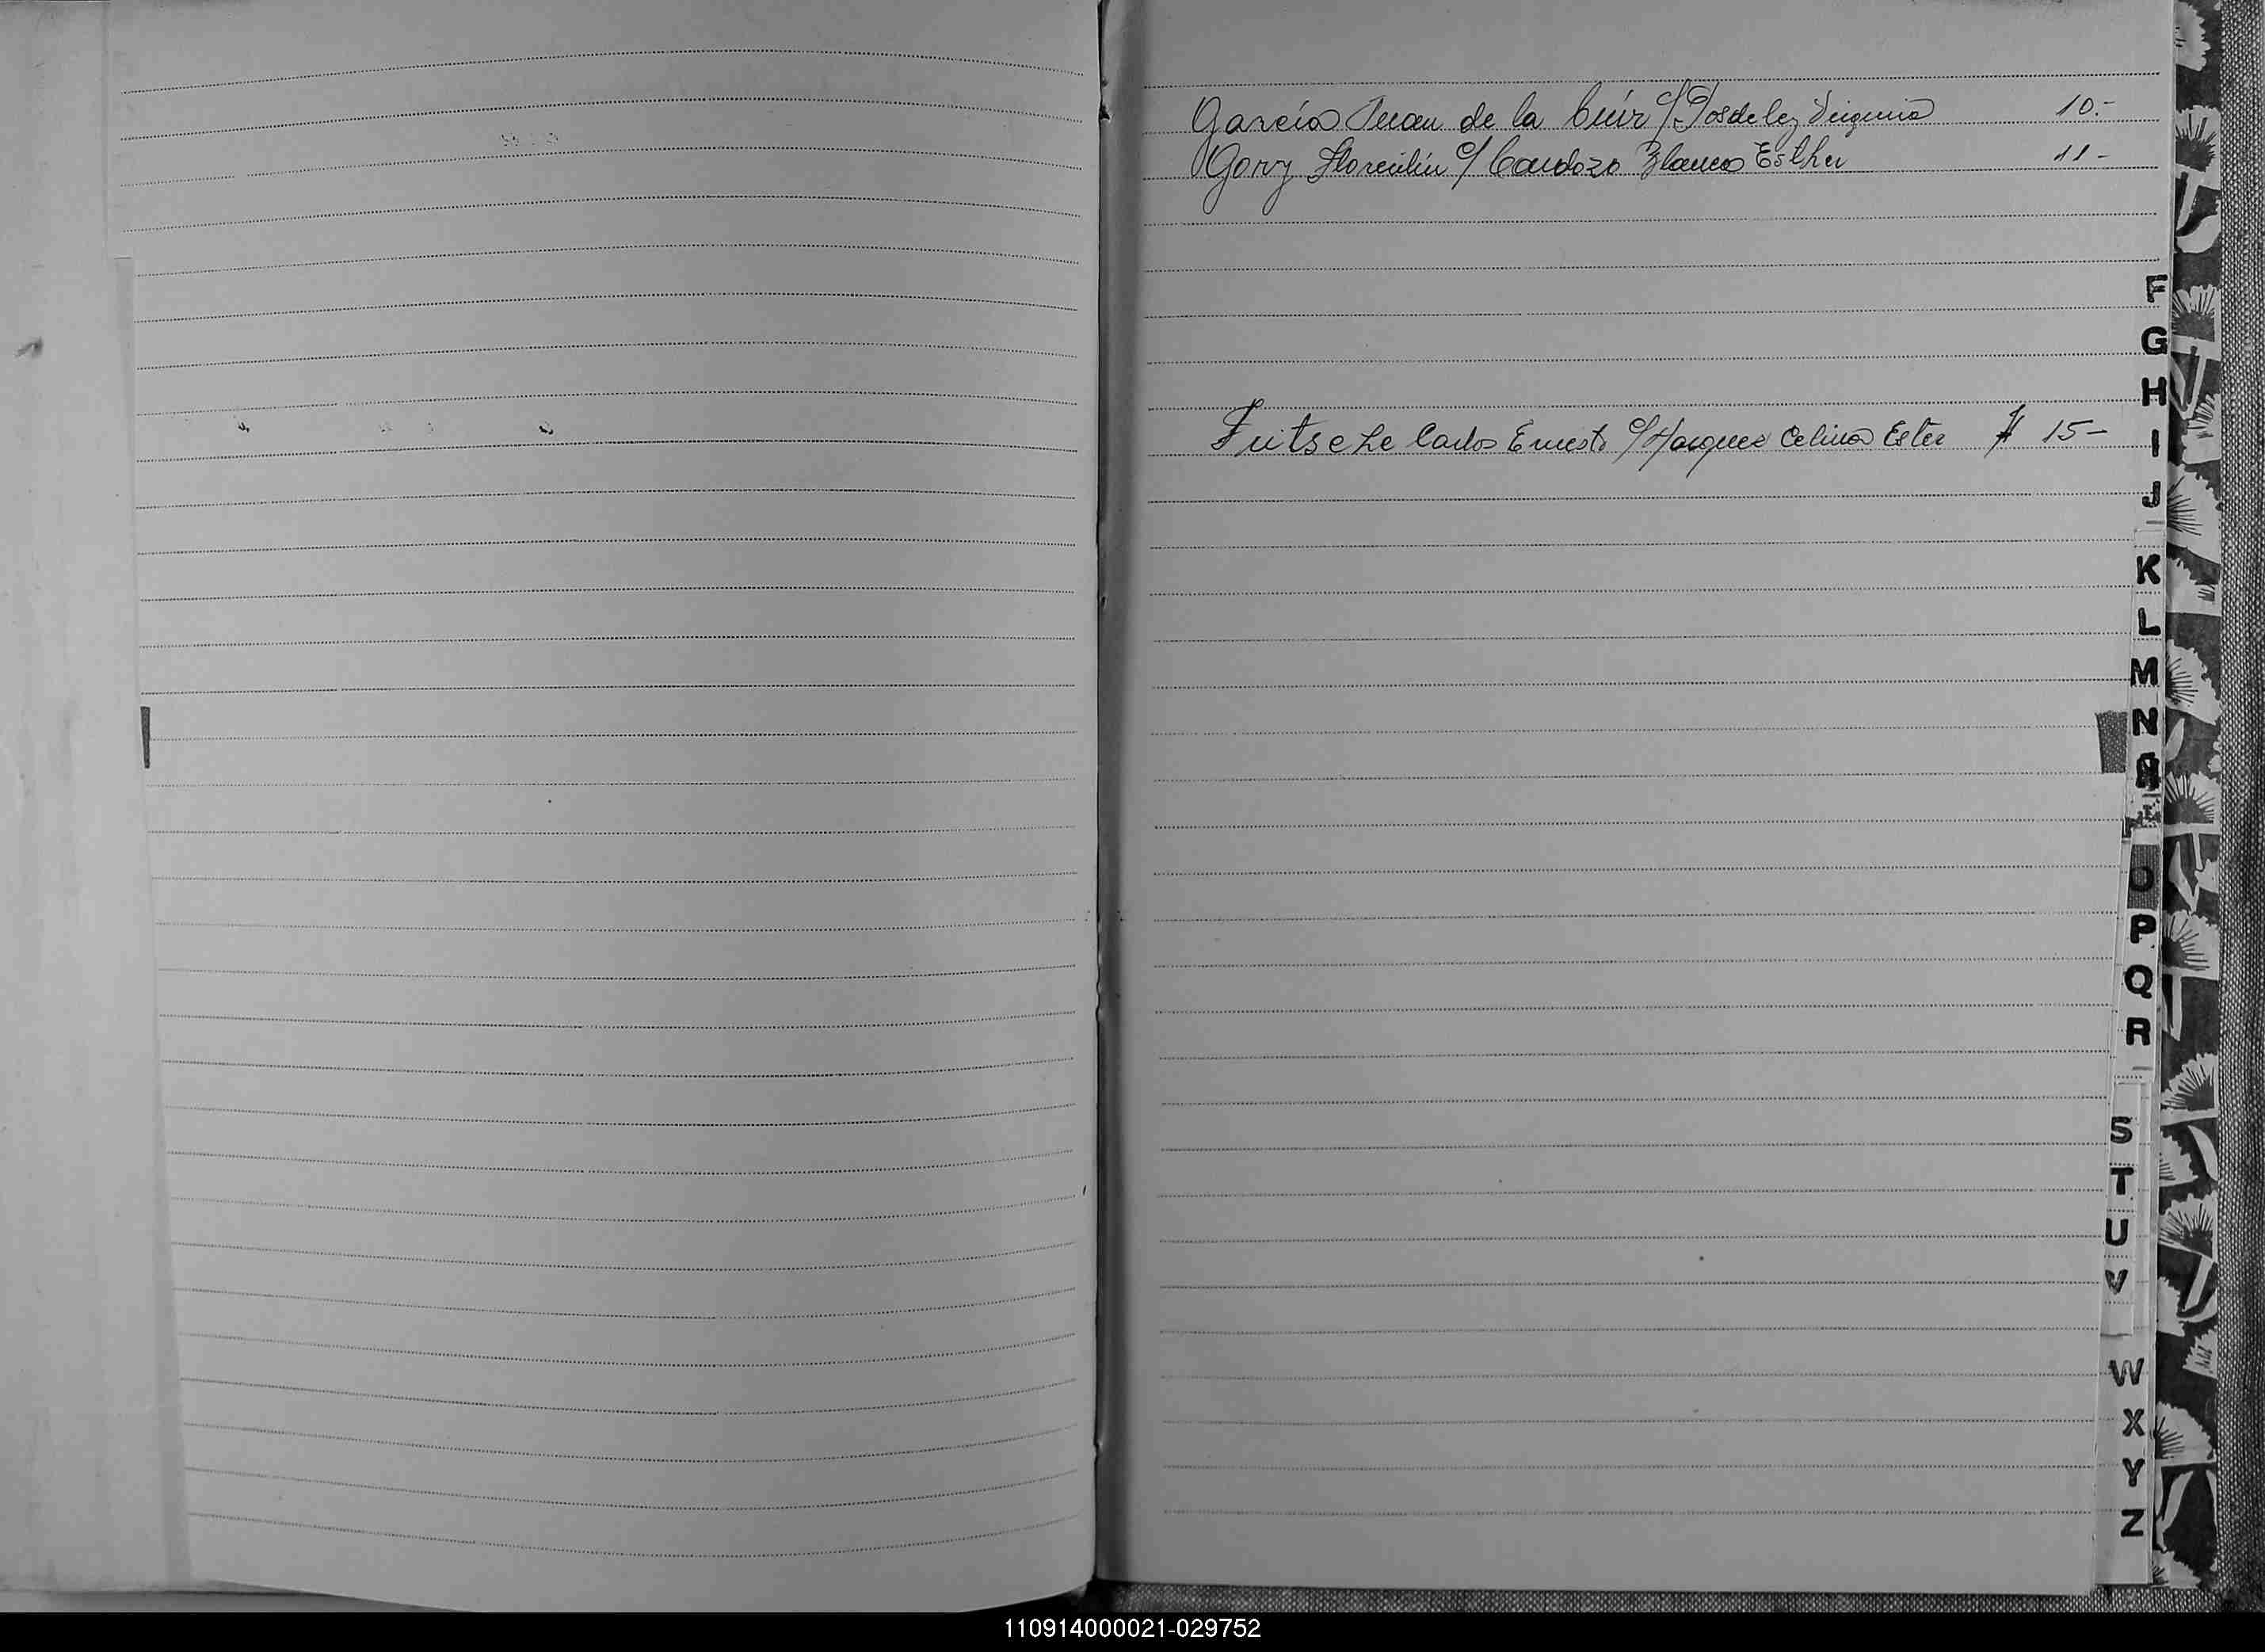 García Juan de la Cruz c/ Virginia 10.-
Gory Florentín c/ Cardozo Blanca Esther 11-
Fritsche Carlos Ernesto c/ Marquez Celina Ester # 15-
F
G
H
I
J
K
L
M
N
Ñ
O
P
Q
R
S
T
U
V
W
X
Y
Z
110914000021-029752